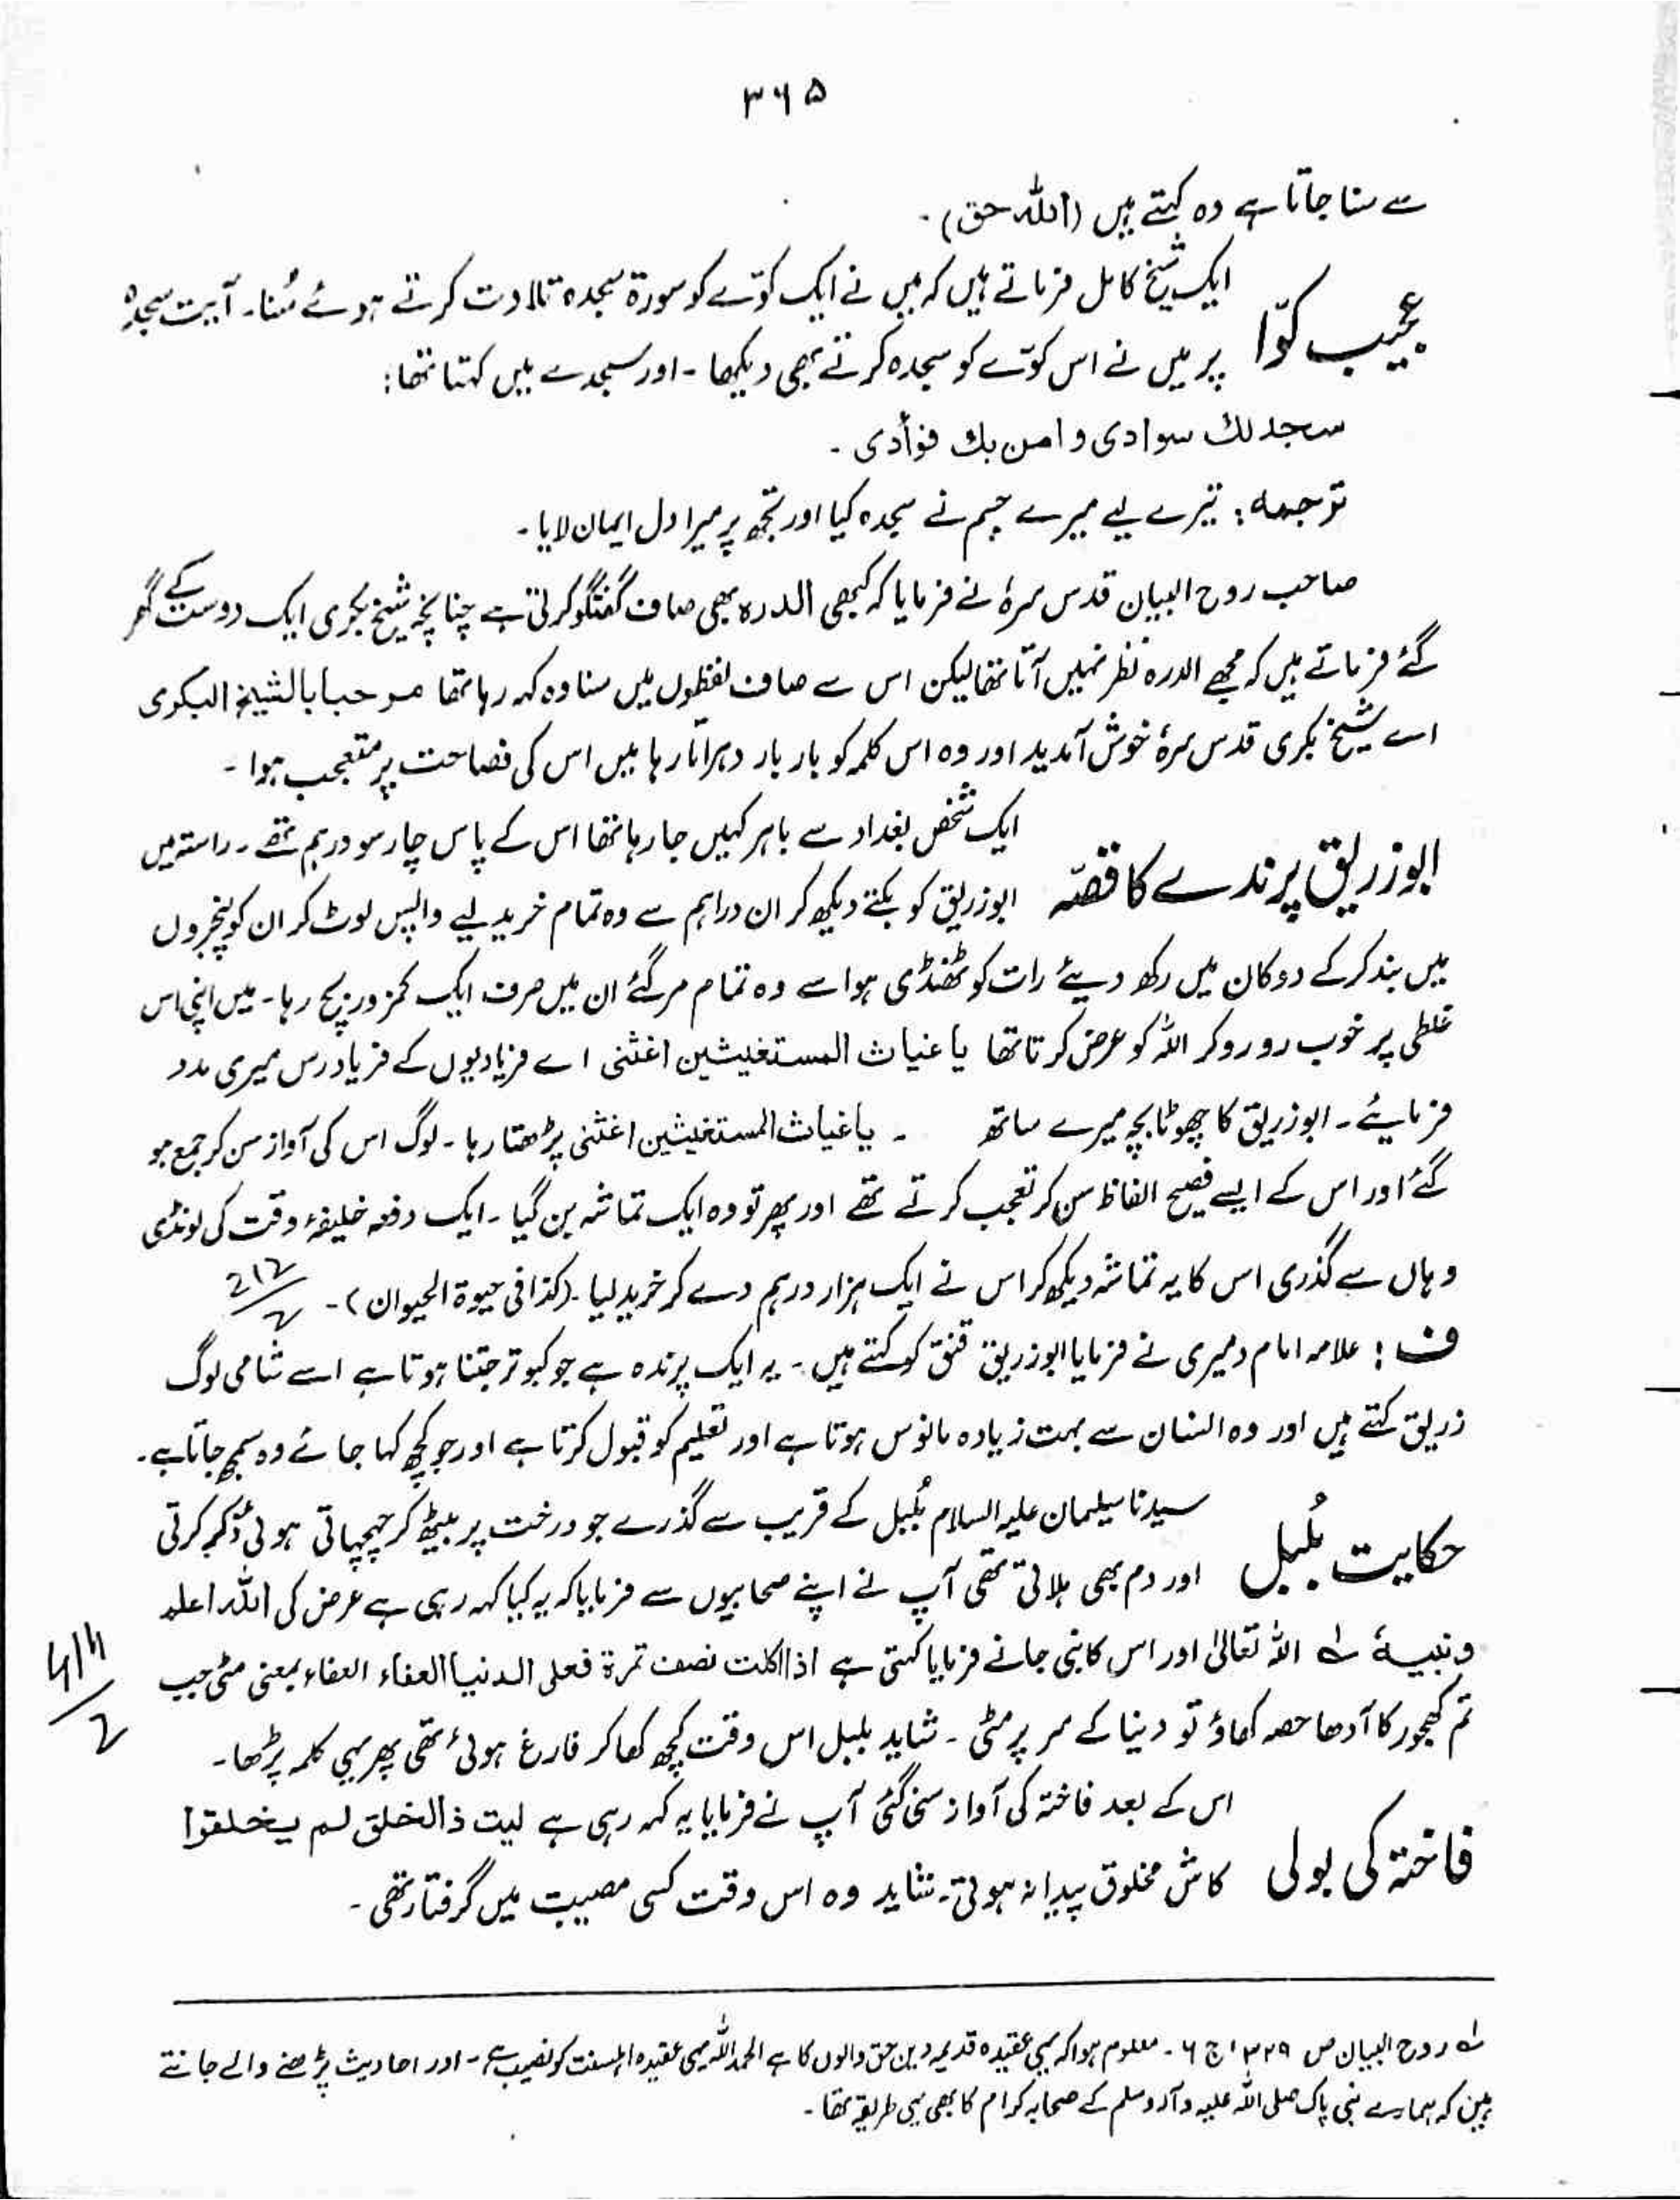 ۳۶۵
سے سنا جاتا ہے وہ کہتے ہیں (اللہ حق)۔
عجیب کوّا ایک شیخ کامل فرماتے ہیں کہ میں نے ایک کوّے کو سورۃ سجدہ تلاوت کرتے ہوئے سُنا۔ آیت سجدہ
پر میں نے اس کوّے کو سجدہ کرتے بھی دیکھا۔ اور سجدے میں کہتا تھا:
سجد لك سوادی و امن بك فؤادی۔
ترجمہ: تیرے لیے میرے جسم نے سجدہ کیا اور تجھ پر میرا دل ایمان لایا۔
صاحب روح البیان قدس سرہٗ نے فرمایا کہ کبھی الدرہ بھی صاف گفتگو کرتی ہے چنانچہ شیخ بکری ایک دوست کے گھر
گئے فرماتے ہیں کہ مجھے الدرہ نظر نہیں آتا تھا لیکن اس سے صاف لفظوں میں سنا وہ کہہ رہا تھا مرحبا بالشیخ البکری
اے شیخ بکری قدس سرہٗ خوش آمدید اور وہ اس کلمہ کو بار بار دہراتا رہا میں اس کی فصاحت پر متعجب ہوا۔
ابوزریق پرندے کا قصّہ ایک شخص بغداد سے باہر کہیں جا رہا تھا اس کے پاس چار سو درہم تھے۔ راستہ میں
ابوزریق کو بکتے دیکھ کر ان دراہم سے وہ تمام خرید لیے واپس لوٹ کر ان کو پنجروں
میں بند کر کے دوکان میں رکھ دیئے رات کو ٹھنڈی ہوا سے وہ تمام مر گئے ان میں صرف ایک کمزور بچ رہا۔ میں اپنی اس
غلطی پر خوب رو رو کر اللہ کو عرض کرتا تھا یا غیاث المستغیثین اغثنی اے فریادیوں کے فریاد رس میری مدد
فرمایئے۔ ابوزریق کا چھوٹا بچہ میرے ساتھ ۔ یا غیاث المستغیثین اغثنی پڑھتا رہا۔ لوگ اس کی آواز سن کر جمع ہو
گئے اور اس کے ایسے فصیح الفاظ سن کر تعجب کرتے تھے اور پھر تو وہ ایک تماشہ بن گیا۔ ایک دفعہ خلیفۂ وقت کی لونڈی
وہاں سے گذری اس کا یہ تماشہ دیکھ کر اس نے ایک ہزار درہم دے کر خرید لیا۔ (کذا فی حیوۃ الحیوان)۔
ف: علامہ امام دمیری نے فرمایا ابوزریق قنق کو کہتے ہیں۔ یہ ایک پرندہ ہے جو کبوتر جتنا ہوتا ہے اسے شامی لوگ
زریق کہتے ہیں اور وہ انسان سے بہت زیادہ مانوس ہوتا ہے اور تعلیم کو قبول کرتا ہے اور جو کچھ کہا جائے وہ سمجھ جاتا ہے۔
حکایت بُلبل سیدنا سلیمان علیہ السلام بُلبل کے قریب سے گذرے جو درخت پر بیٹھ کر چہچہاتی ہوئی ذکر کرتی
اور دم بھی ہلاتی تھی آپ نے اپنے صحابیوں سے فرمایا کہ یہ کیا کہہ رہی ہے عرض کی اللہ اعلم
و نبیہٗ لے اللہ تعالیٰ اور اس کا نبی جانے فرمایا کہتی ہے اذا اکلت نصف تمرۃ فعلی الدنیا العفاء العفاء بمعنی مٹی جب
تم کھجور کا آدھا حصہ کھاؤ تو دنیا کے سر پر مٹی۔ شاید بلبل اس وقت کچھ کھا کر فارغ ہوئی تھی پھر یہی کلمہ پڑھا۔
فاختہ کی بولی اس کے بعد فاختہ کی آواز سنی گئی آپ نے فرمایا یہ کہہ رہی ہے لیت ذا الخلق لم یخلقوا
کاش مخلوق پیدا نہ ہوتی۔ شاید وہ اس وقت کسی مصیبت میں گرفتار تھی۔
لے روح البیان ص ۳۲۹، ج ۶۔ معلوم ہوا کہ یہی عقیدہ قدیمہ دین حق والوں کا ہے الحمد للہ یہی عقیدہ اہلسنت کو نصیب ہے۔ اور احادیث پڑھنے والے جانتے
ہیں کہ ہمارے نبی پاک صلی اللہ علیہ وآلہ وسلم کے صحابہ کرام کا بھی یہی طریقہ تھا۔